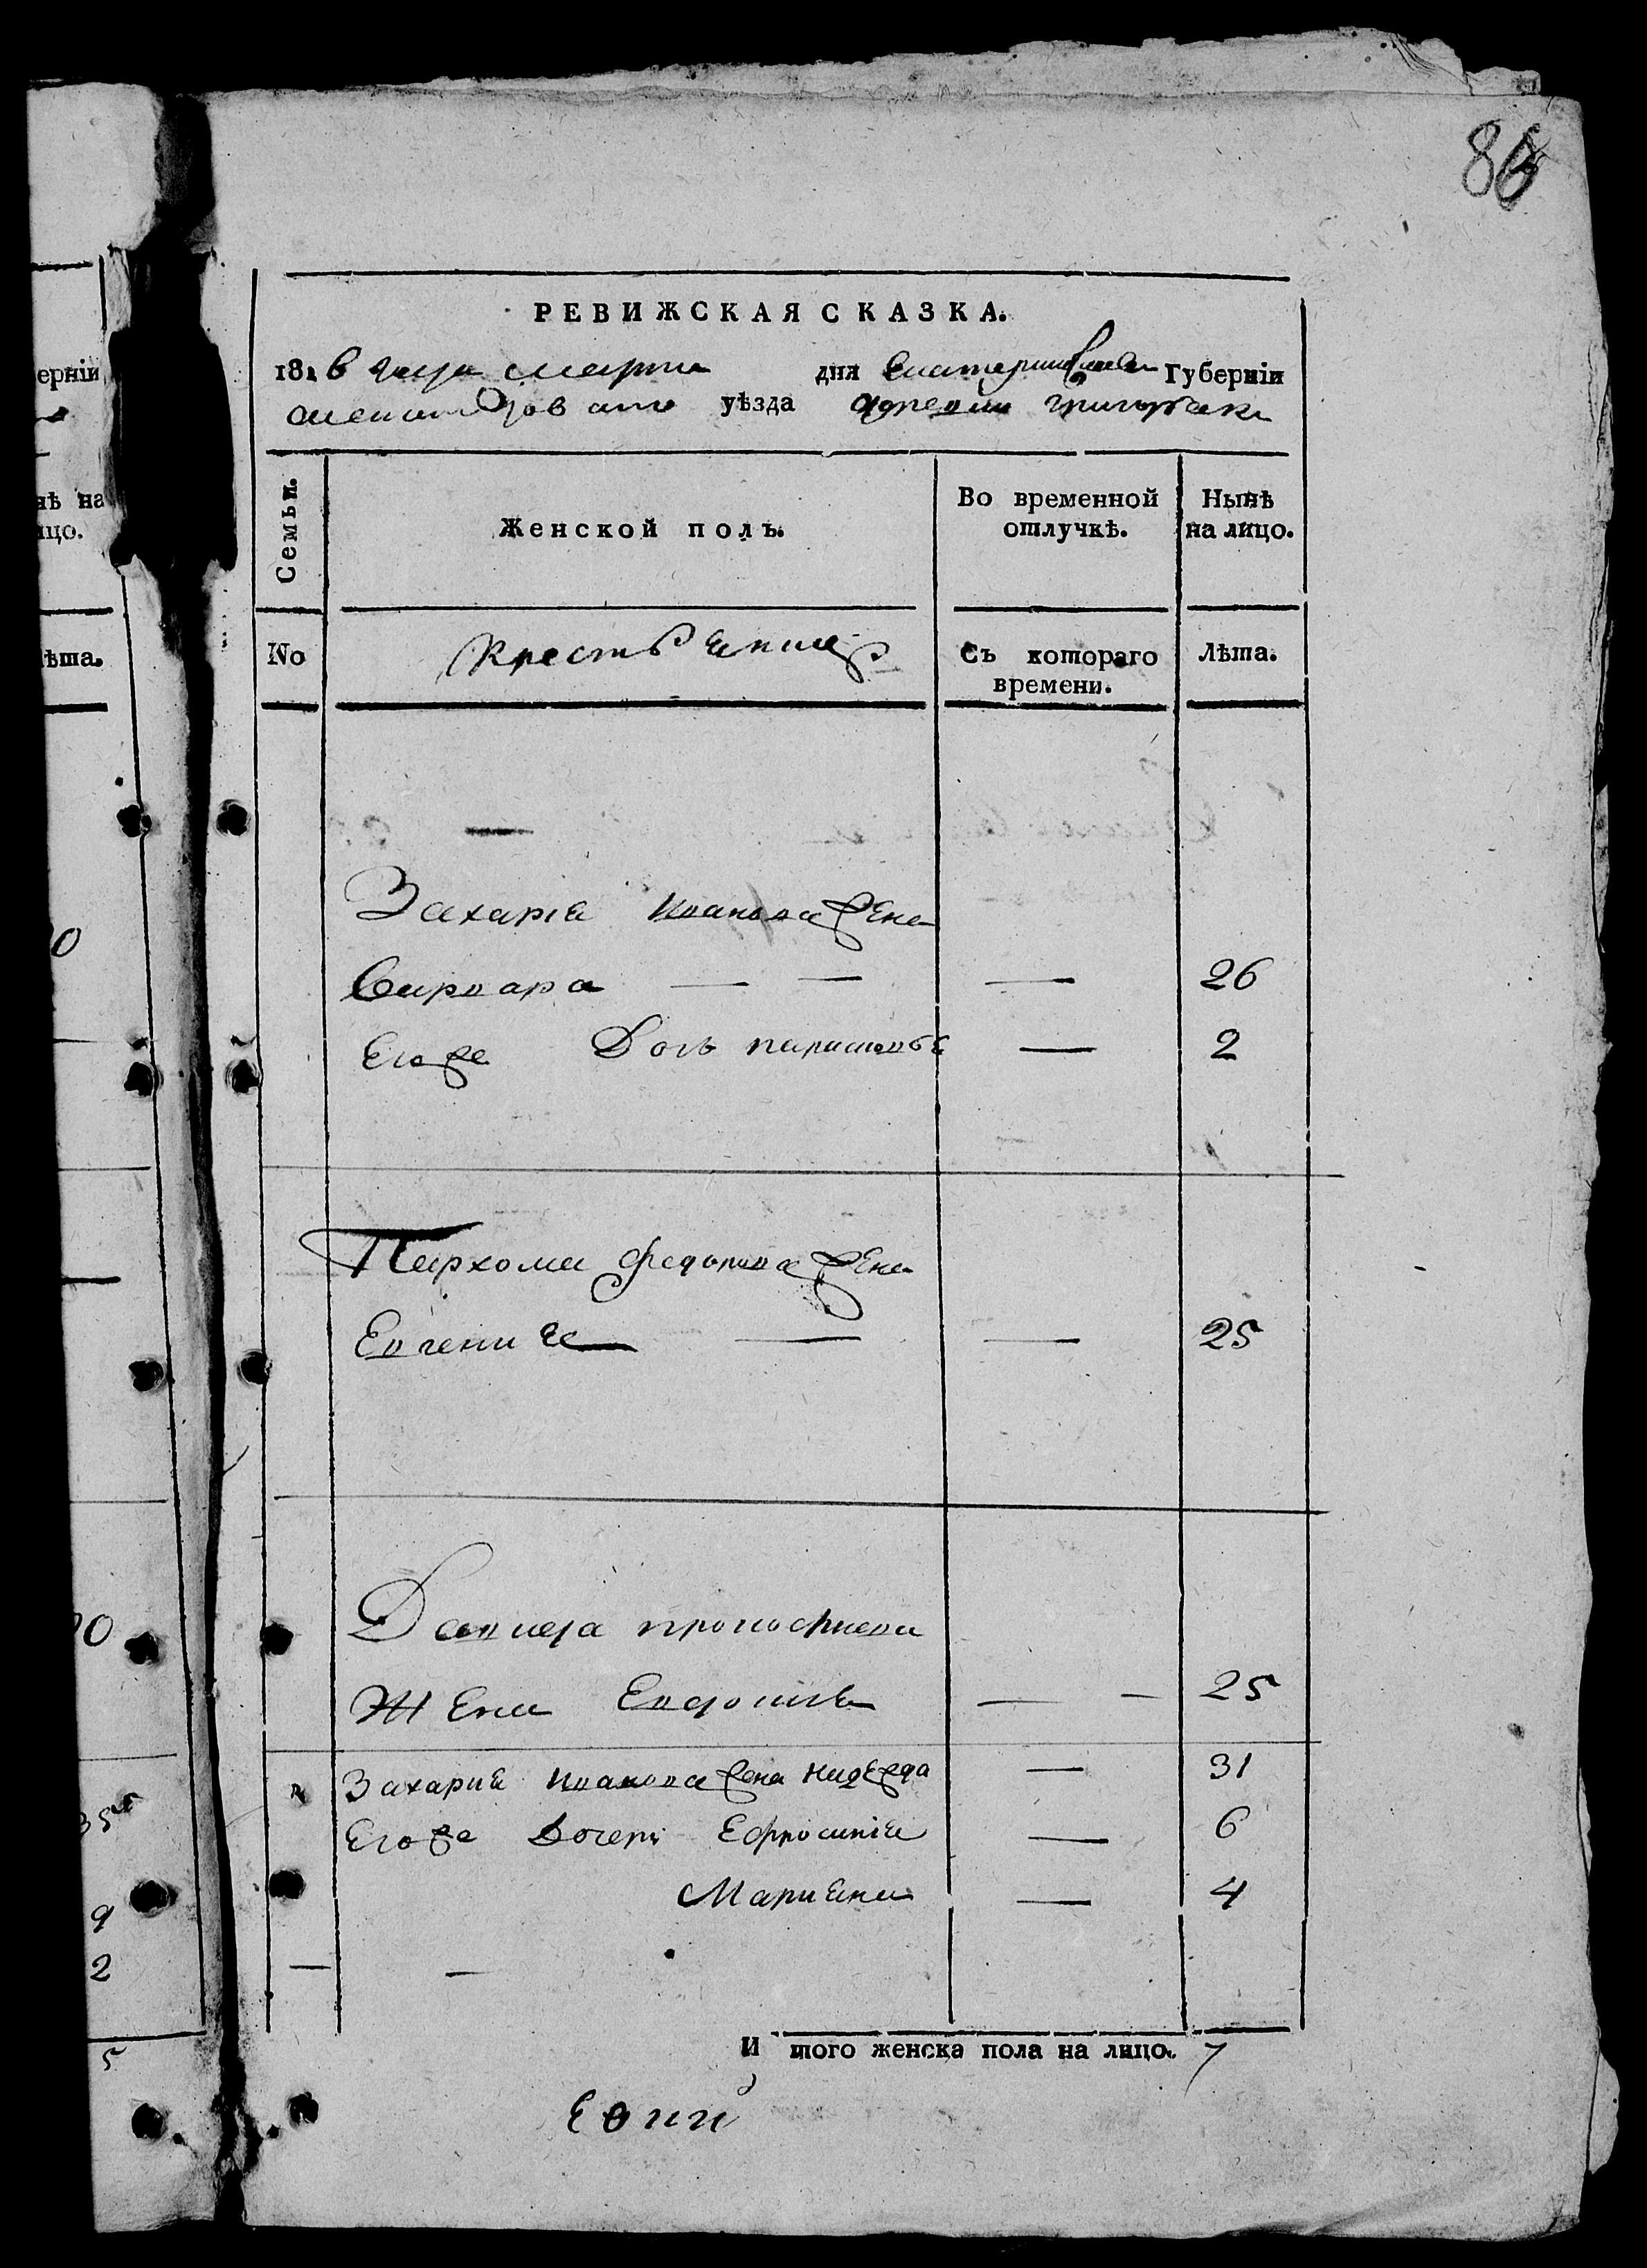 86
РЕВИЖСКАЯ СКАЗКА.
1816 года марта дня Екатеринославской Губерніи
александровского уѣзда деревни григорьевки
Семьи.
Женской полъ.
Во временной отлучкѣ.
Нынѣ на лицо.
No
Крестьяне
Съ котораго времени.
Лѣта.
Захария иванова жена
варвара — — — 26
Его же Дочь — 2
Пархома федорова жена
Евгения — — — 25
Данила прокофиева
Жена Евдокия — — 25
Захария иванова жена надежда — 31
Его же дочери Ефросиния — 6
Мариана — 4
— —
Итого женска пола на лицо. 7
ерніи
нѣ на
ицо.
лѣта.
0
35
9
2
5